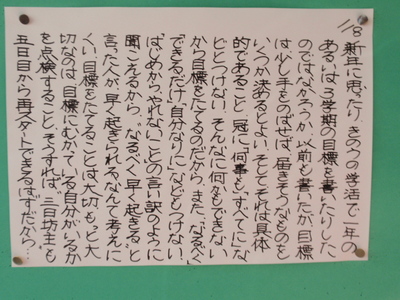 1/8 新年に思ったり、きのうの学活で一年の
あるいは3学期の目標を書いたりした
のではなかろうか。以前も書いたが、目標
は、少し手をのばせば、届きそうなものを
いくつか決めるとよい。そして、それは具体
的であること。冠に「何事も」「すべてに」な
どとつけない。そんなに何々もできない
から目標をたてるのだから。また、「なるべく」
「できるだけ」「自分なりに」などもつけない。
はじめから、やれないことの言い訳のように
聞こえるから。「なるべく早く起きる」と
言った人が、早く起きられるなんて考えに
くい。目標をたてることは大切。もっと大
切なのは、目標にむかている自分がいるか
を点検すること。そうすれば、三日坊主も
五日目から再スタートできるはずだから…